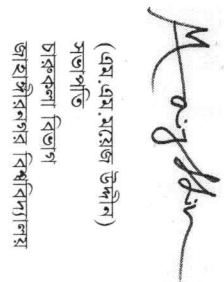 (এম.এম. ময়েজ উদ্দীন)
সভাপতি
চারুকলা বিভাগ
জাহাঙ্গীরনগর বিশ্ববিদ্যালয়